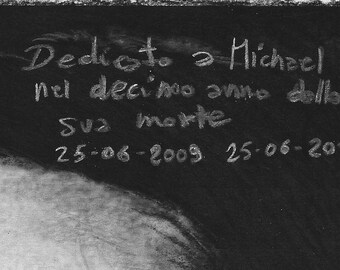 Dedicato a Michael
nel decimo anno della
sua morte
25-06-2009 25-06-20